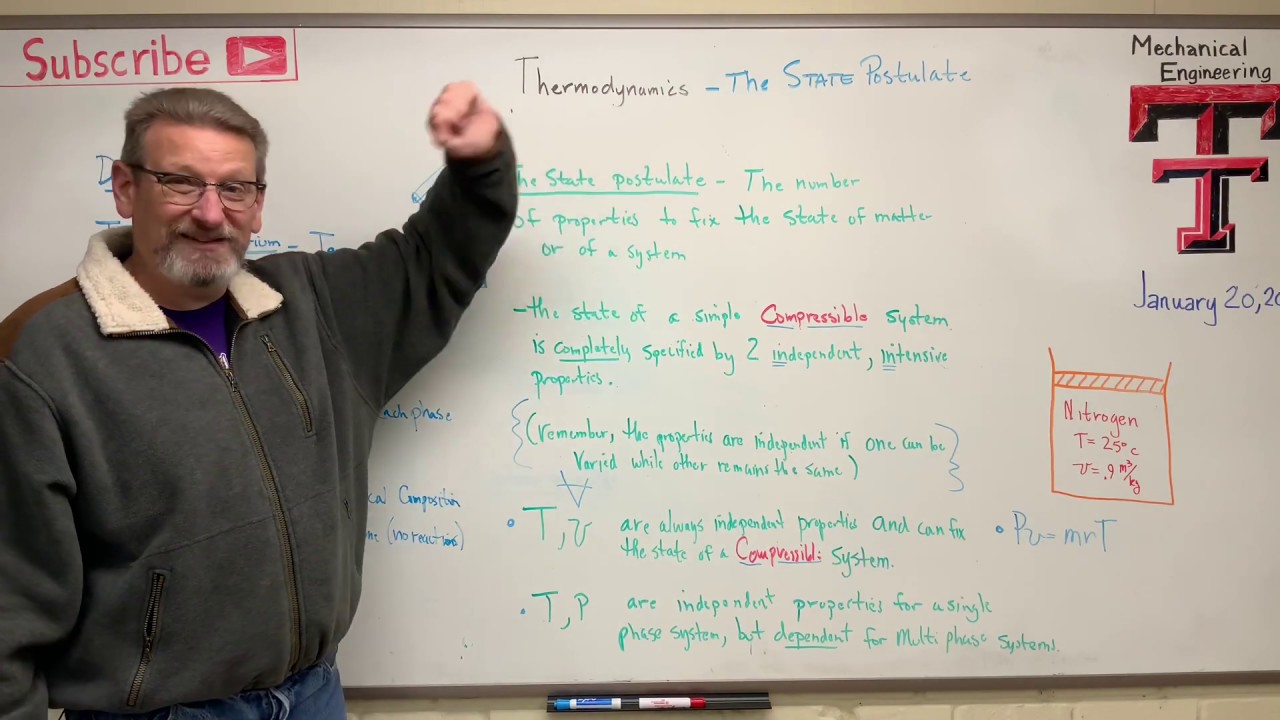 Subscribe
Thermodynamics - The STATE Postulate
Mechanical
Engineering
The State postulate - The number
of properties to fix the state of matter
or of a system
January 20, 20
- the state of a simple Compressible system
is completely specified by 2 independent, intensive
properties.
each phase
(remember, the properties are independent if one can be
Varied while other remains the same)
Nitrogen
T = 25°C
v = .9 m³/kg
cal Composition
(no reaction)
• T, v are always independent properties and can fix
the state of a Compressible System.
• Pv = mrT
• T, P are independent properties for a single
phase system, but dependent for Multi phase systems.